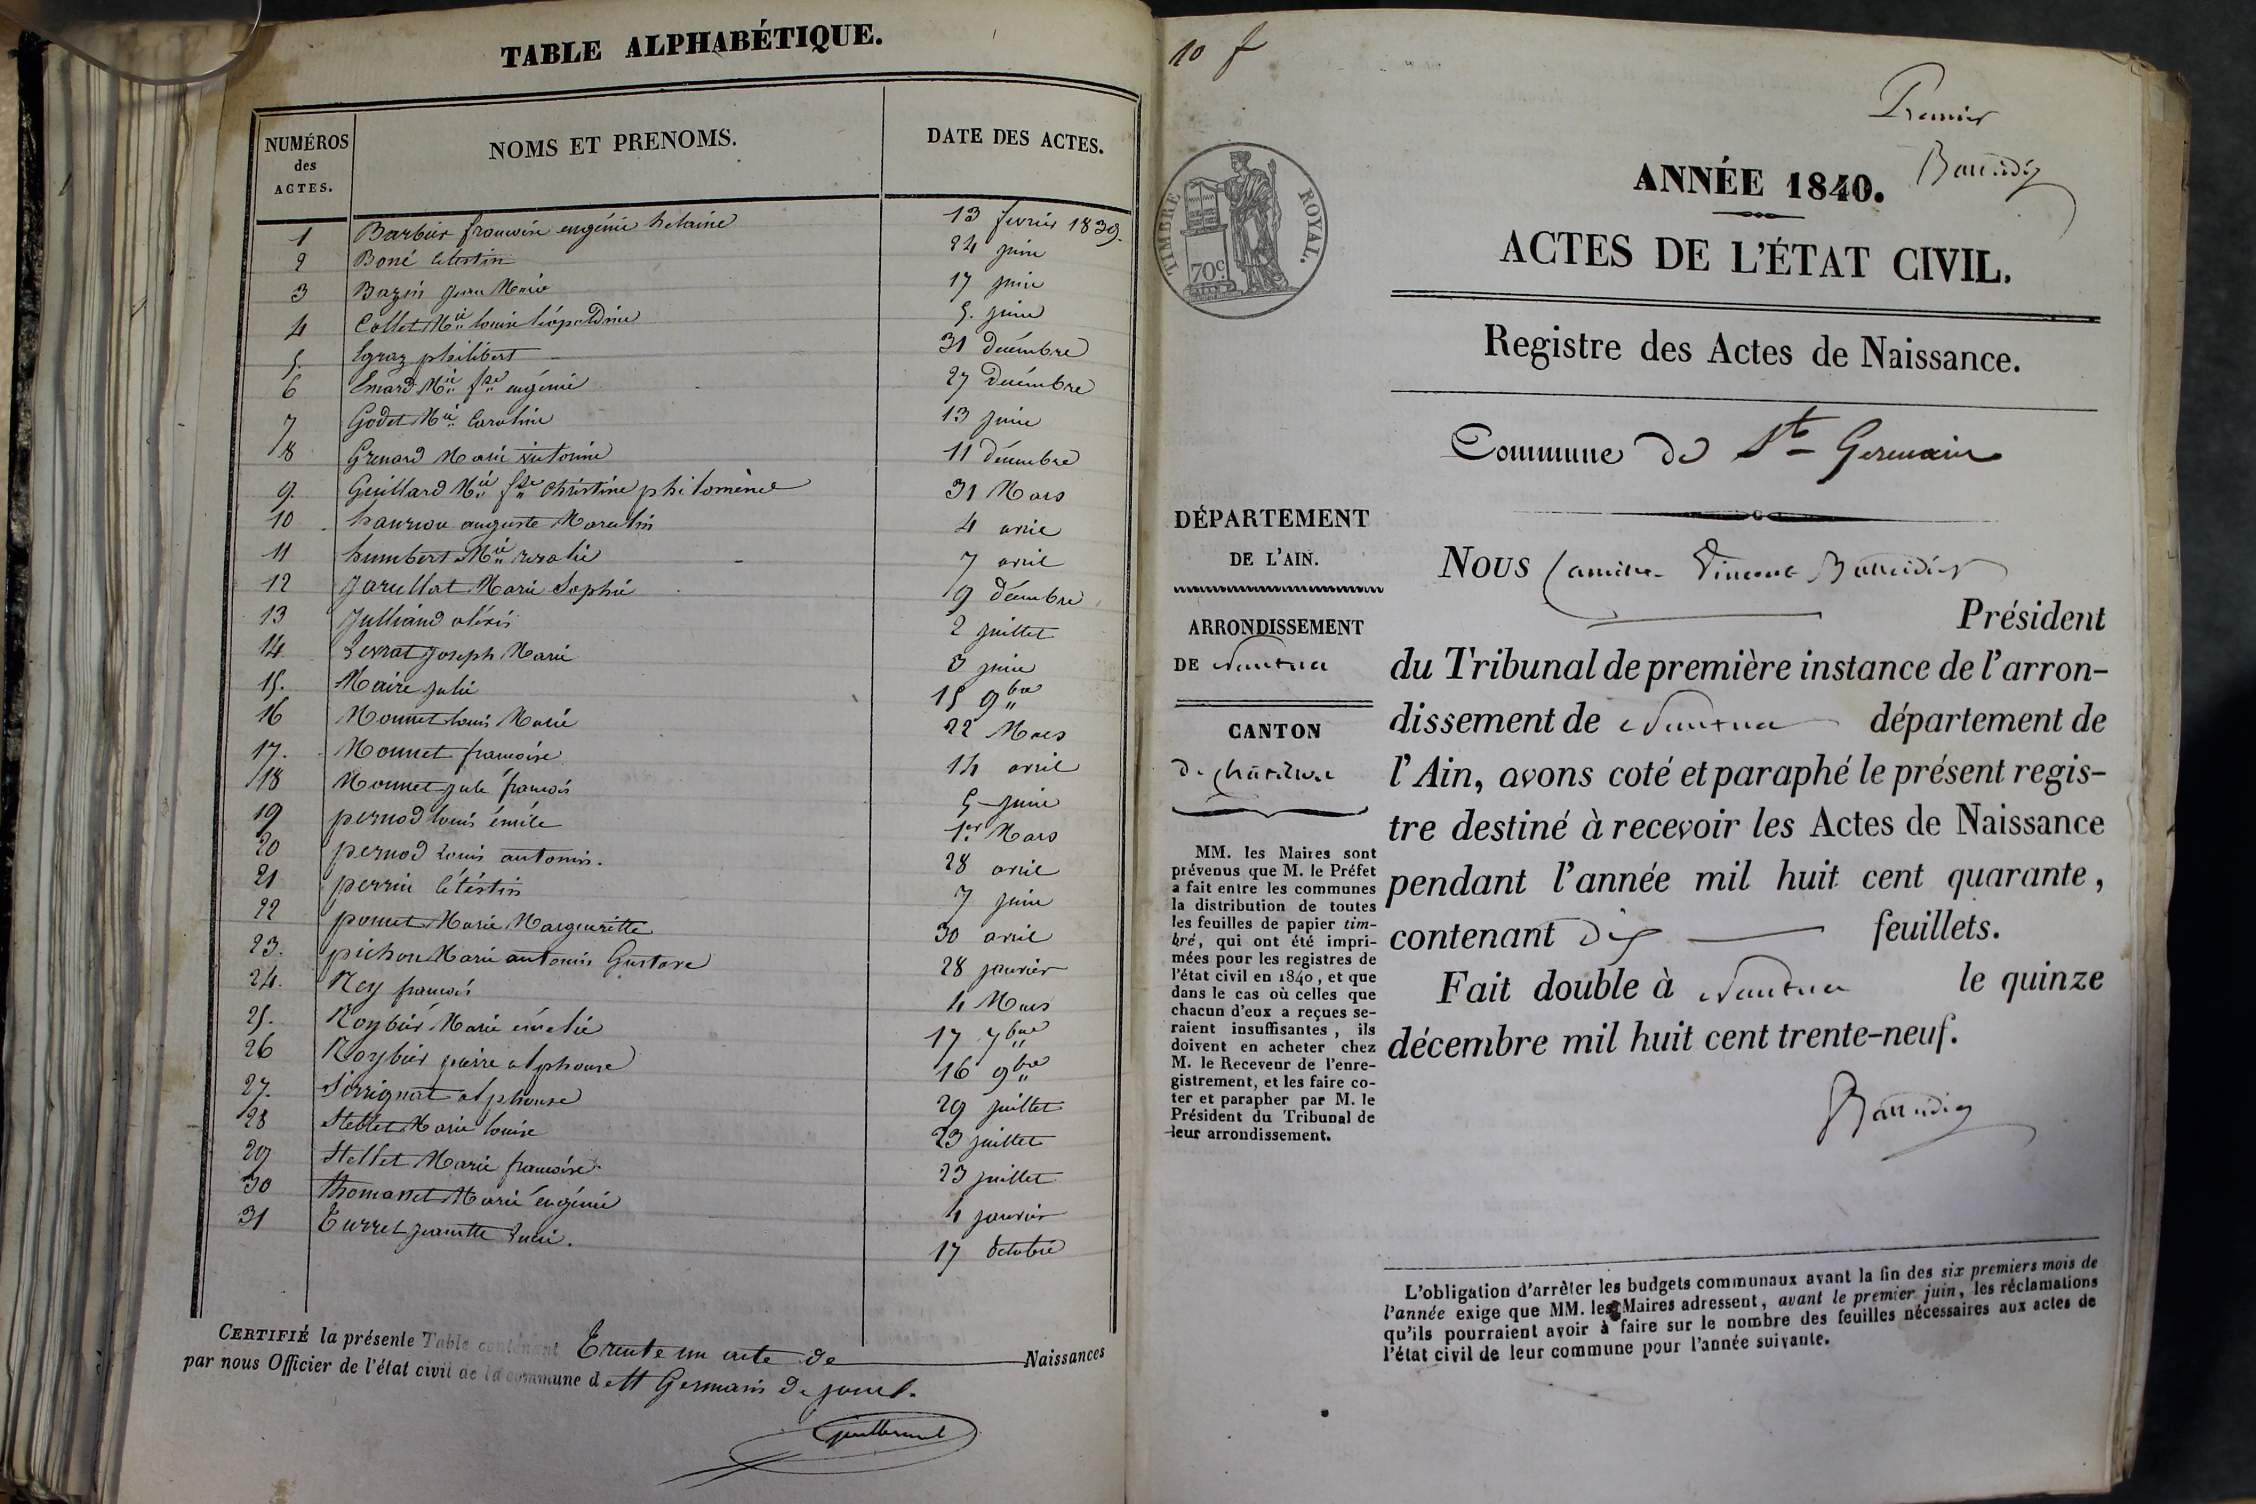 TABLE ALPHABÉTIQUE.
NUMÉROS des ACTES. NOMS ET PRENOMS. DATE DES ACTES.
1 Barbier françoise eugénie 13 fevrier 1839.
2 Boné Célestin 24 juin
3 Bazin jean Marie 17 juin
4 Collet Mie louise léopoldine 5. juin
5. Egraz philibert 31 Decembre
6 Emard Mie fse eugénie 27 Decembre
7 Godet Mie Caroline 13 juin
8 Grenard Marie victorine 11 décembre
9. Guillard Mie fse Christine philomène 31 Mars
10 auguste Marcelin 4 avril
11 humbert Mie rosalie 7 avril
12 Jarullat Marie Sophie 9 Décembre
13 Julliand alexis 2 juillet
14. Levrat joseph Marie 3 juin
15. Maire julie 15 9bre
16 Monnet louis Marie 22 Mars
17. Monnet françoise 14 avril
18 Monnet jule françois 5 juin
19 pernod louis émile 1er Mars
20 pernod louis antonin. 28 avril
21 perrin Célestin 7 juin
22 ponnet Marie Margueritte 30 avril
23. pichon Marie antonin Gustave 28 janvier
24. Rey françois 4 Mars
25. Roybier Marie émélie 17 7bre
26 Roybier pierre alphonse 16 9bre
27. Serrignat alphonse 29 juillet
28 Steblet Marie louise 23 juillet
29 Stellet Marie françoise 23 juillet
30 thomasset Marie éugénie 4 janvier
31 Turrel jeanette Lucie. 17 Octobre
CERTIFIÉ la présente Table contenant Trente un acte de Naissances
par nous Officier de l'état civil de la commune de St Germain de joux.
10 f
Premier
Baudin
TIMBRE ROYAL.
70c.
ANNÉE 1840.
ACTES DE L'ÉTAT CIVIL.
Registre des Actes de Naissance.
Commune de St Germain
DÉPARTEMENT
DE L'AIN.
ARRONDISSEMENT
DE Nantua
CANTON
de châtillon
MM. les Maires sont
prévenus que M. le Préfet
a fait entre les communes
la distribution de toutes
les feuilles de papier tim-
bré, qui ont été impri-
mées pour les registres de
l'état civil en 1840, et que
dans le cas où celles que
chacun d'eux a reçues se-
raient insuffisantes, ils
doivent en acheter chez
M. le Receveur de l'enre-
gistrement, et les faire co-
ter et parapher par M. le
Président du Tribunal de
leur arrondissement.
NOUS Camille Vincent
Président
du Tribunal de première instance de l'arron-
dissement de Nantua département de
l'Ain, avons coté et paraphé le présent regis-
tre destiné à recevoir les Actes de Naissance
pendant l'année mil huit cent quarante,
contenant Dix feuillets.
Fait double à Nantua le quinze
décembre mil huit cent trente-neuf.
L'obligation d'arrêter les budgets communaux avant la fin des six premiers mois de
l'année exige que MM. les Maires adressent, avant le premier juin, les réclamations
qu'ils pourraient avoir à faire sur le nombre des feuilles nécessaires aux actes de
l'état civil de leur commune pour l'année suivante.